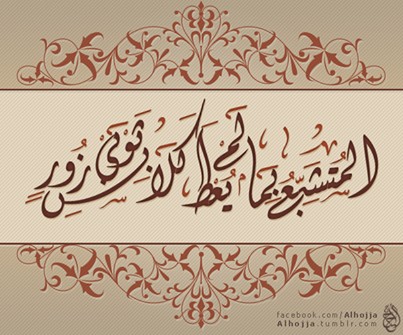 المُتَشَبِّعُ بِمَا لَمْ يُعْطَ كَلَابِسِ ثَوْبَيْ زُورٍ
facebook.com/Alhojja
Alhojja.tumblr.com